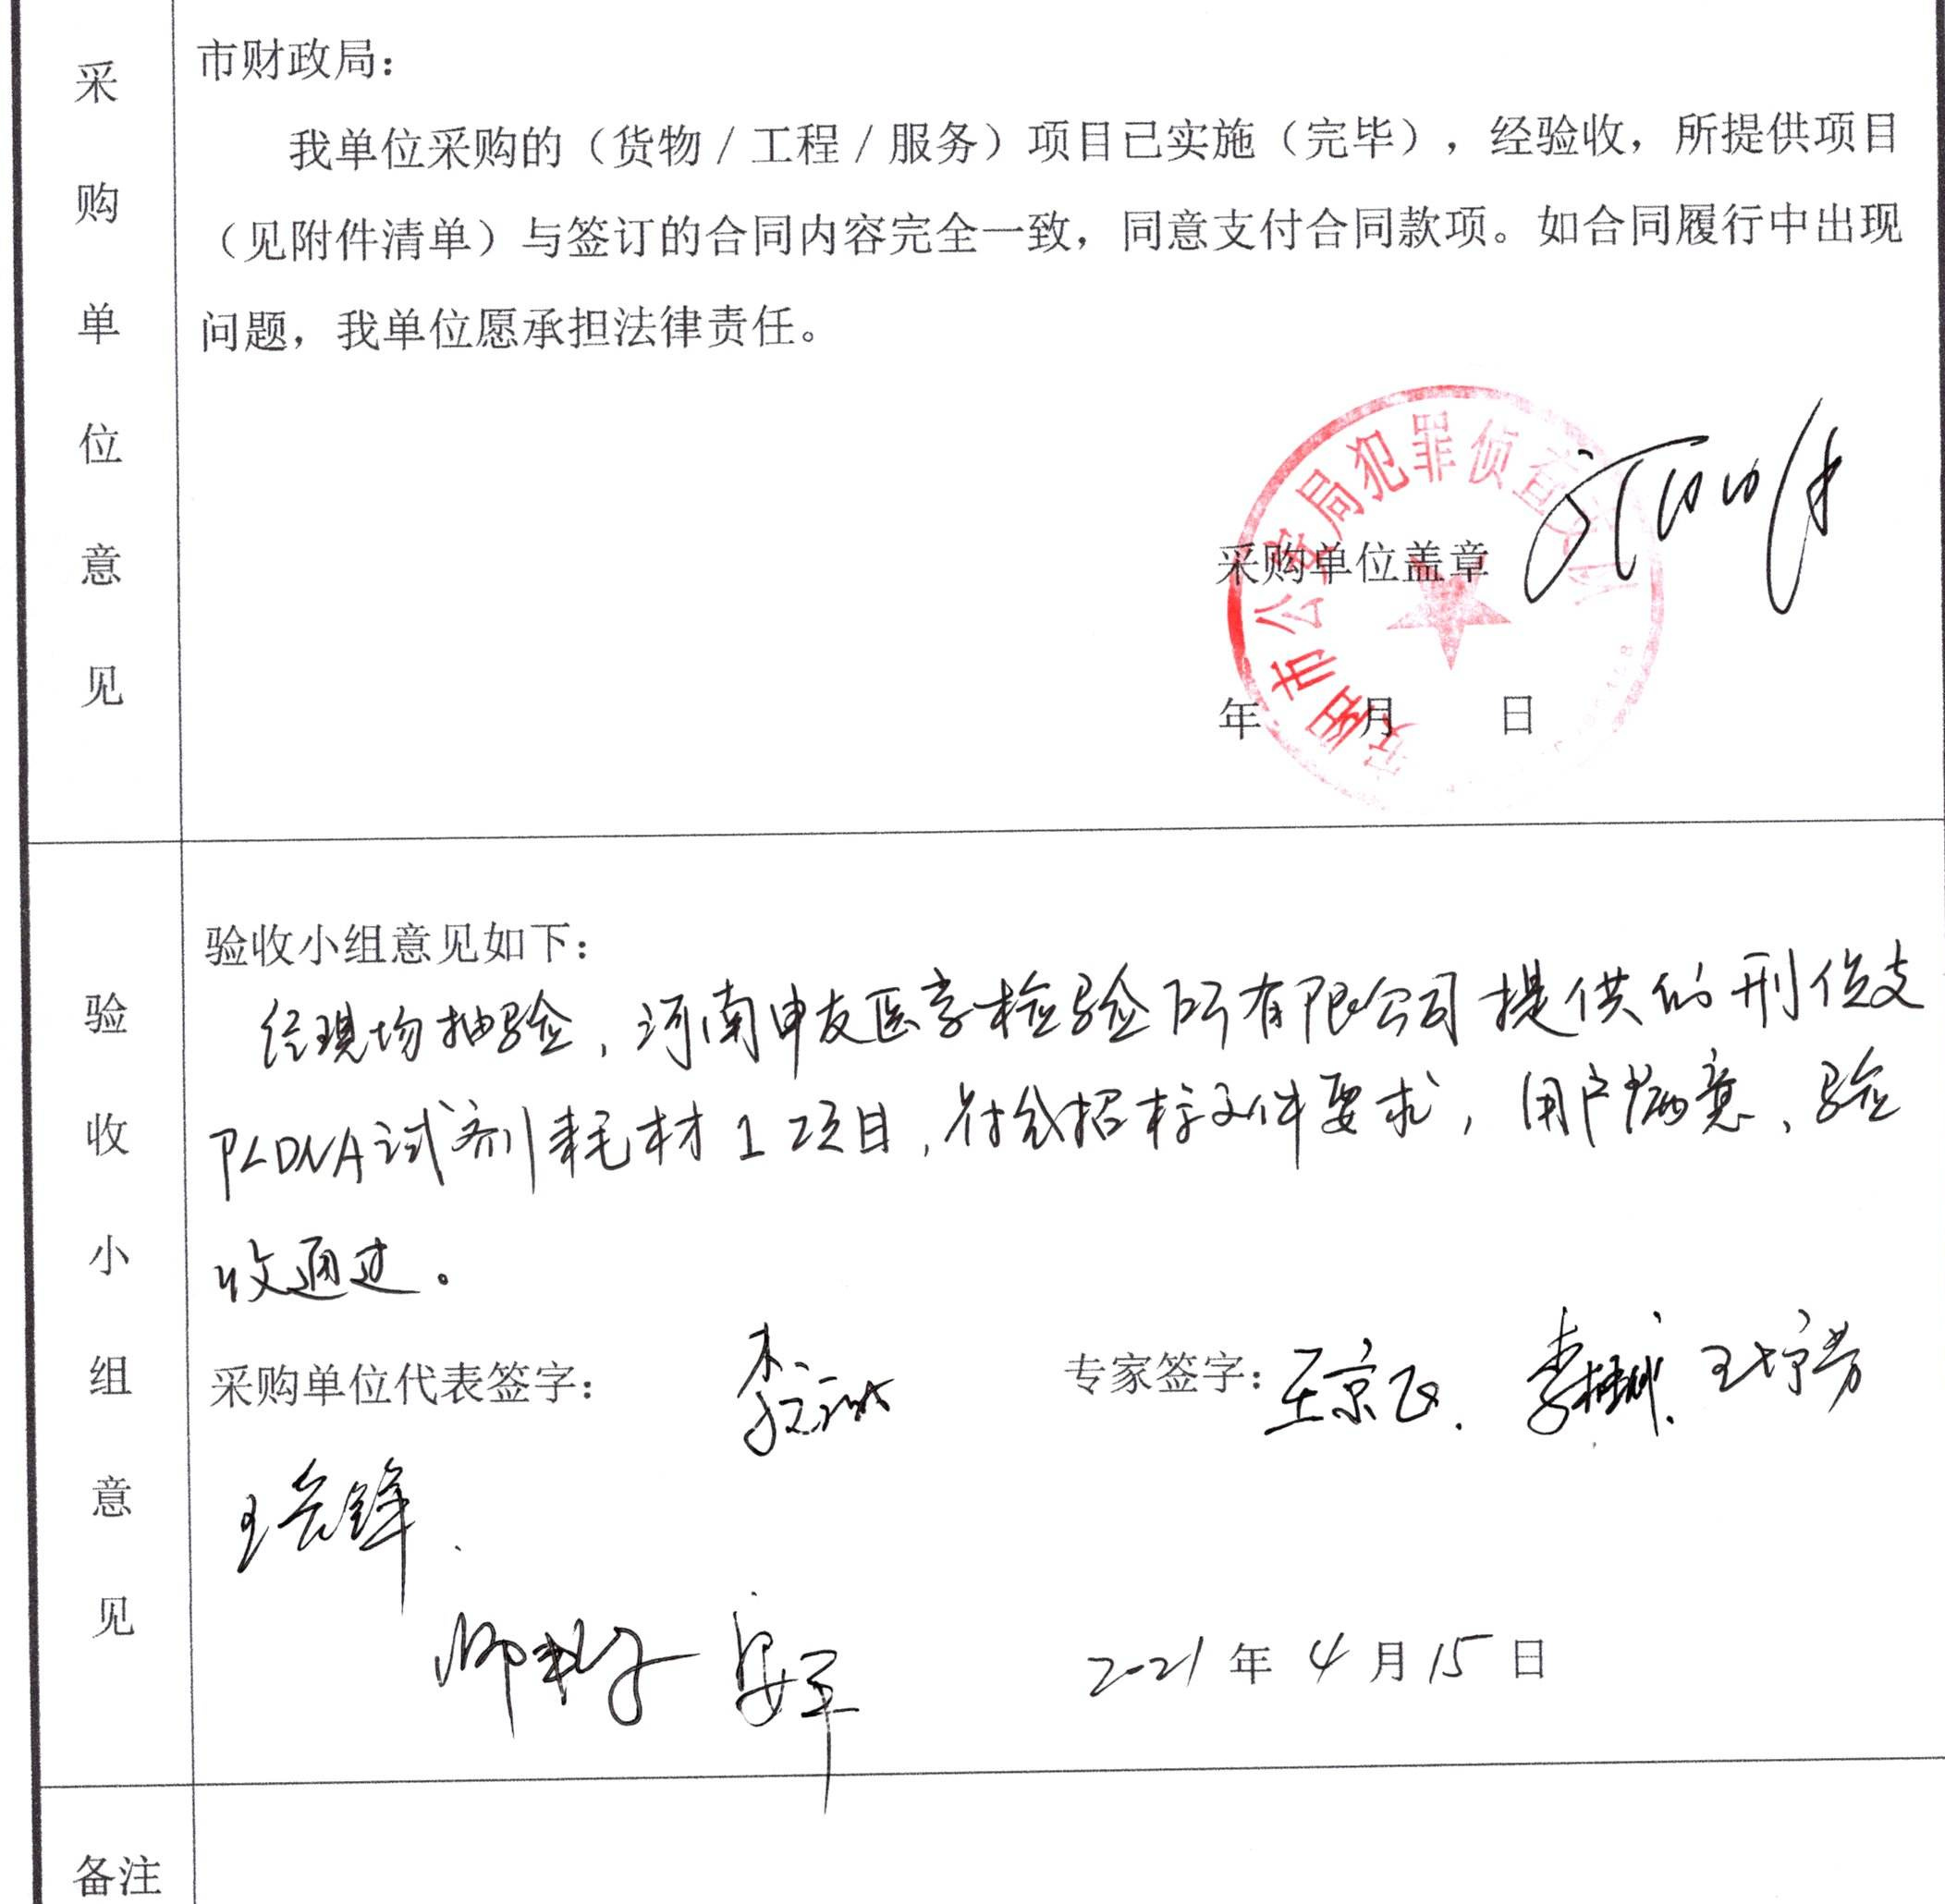 采购单位意见
市财政局：
我单位采购的（货物/工程/服务）项目已实施（完毕），经验收，所提供项目
（见附件清单）与签订的合同内容完全一致，同意支付合同款项。如合同履行中出现
问题，我单位愿承担法律责任。
安阳市公安局犯罪侦查支队
采购单位盖章
年 月 日
验收小组意见
验收小组意见如下：
经现场抽验，河南申友医学检验所有限公司提供的刑侦支
队DNA试剂耗材1项目，符合招标文件要求，用户满意，验
收通过。
采购单位代表签字：
专家签字：王京飞.
2021年4月15日
备注